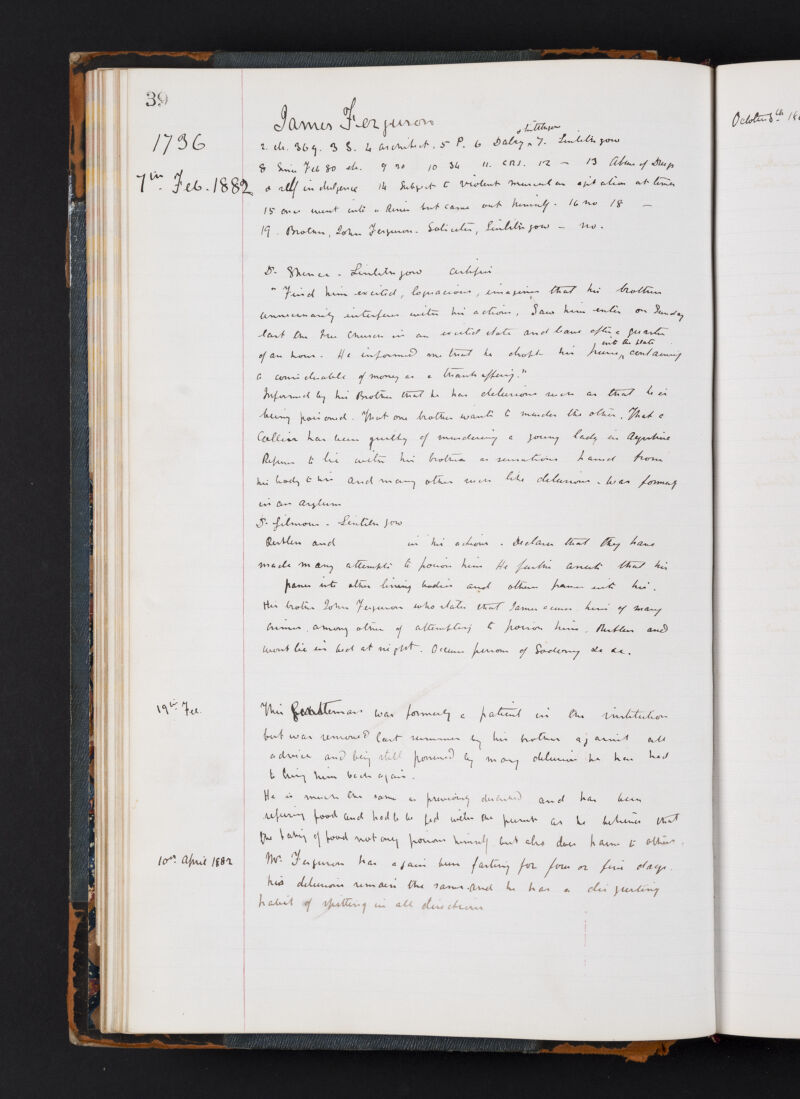 39
James Ferguson
1736
7th Feb. 1882
2. ch. 36 y. 3 S. 4 architect. 5 P. 6 Daley 7. Linlithgow
8 Since Feb 80 9 no 10 3d 11. 12 — 13 Abuse of Drugs
& self indulgence 14 Subject to violent muscular agitation at times
15 once went into a but came out himself. 16 no 18 —
19. Brother, John Ferguson. Solicitor, Linlithgow — no.
Dr. Spence. Linlithgow certifies
"Find him excited, loquacious, imagines that his brother
unnecessarily interferes with his actions. Saw him enter on Sunday
last the Free Church in an excited state and leave after a quarter
of an hour. He informed me that he dropt his purse, containing
into the plate
a considerable of money as a thanks offering."
Informed by his Brother that he has delusions such as that he is
being poisoned. That one brother wants to murder the other. That a
has been guilty of murdering a young lady in
Refuses to lie with his brother as sensations passed from
his body to his and many other such like delusions. Was formerly
in an asylum
Dr. Gilmour. Linlithgow
Restless and in his actions. Declares that they have
made many attempts to poison him He further asserts that his
passes into other living bodies and others pass into his.
His brother John Ferguson who states that James accuses him of many
crimes, among others of attempting to poison him. Restless and
wont lie in bed at night. Accuses persons of Sodomy &c &c.
19th Feb.
This Gentleman was formerly a patient in the institution
but was removed last summer by his brother against all
advice and being still possessed by many delusions he has had
to bring him back again.
He is much the same as previously described and has been
refusing food and had to be fed with the pump as he believes that
the taking of food not only poisons himself but also does harm to others.
10th April 1882
Mr. Ferguson has again been fasting for four or five days.
his delusions remain the same and he has a disgusting
habit of spitting in all directions
October 8th 18